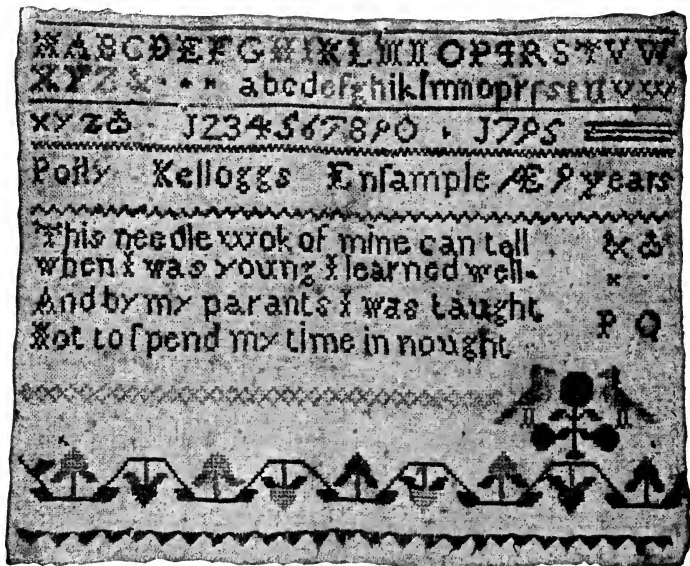 ABCDEFGHIKLMNOPQRSTVW
XYZ& abcdefghiklſmmoprſsttvwx
xyz& 1234567890 1795
Polly Kelloggs Enſample Æ 9 years
This needle wok of mine can tell &
when I was young I learned well
And by my parants I was taught P Q
Not to ſpend my time in nought